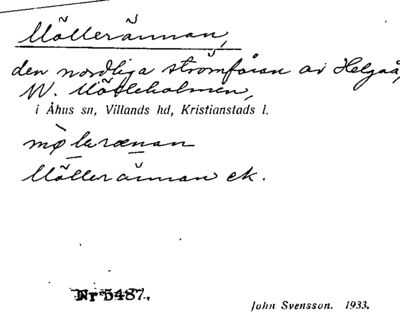 Möllerännan,
den nordliga strömfåran av Helgeå,
N. Mölleholmen,
i Åhus sn, Villands hd, Kristianstads l.
mølerænan
Möllerännan ek.
Nr 5487.
John Svensson. 1933.